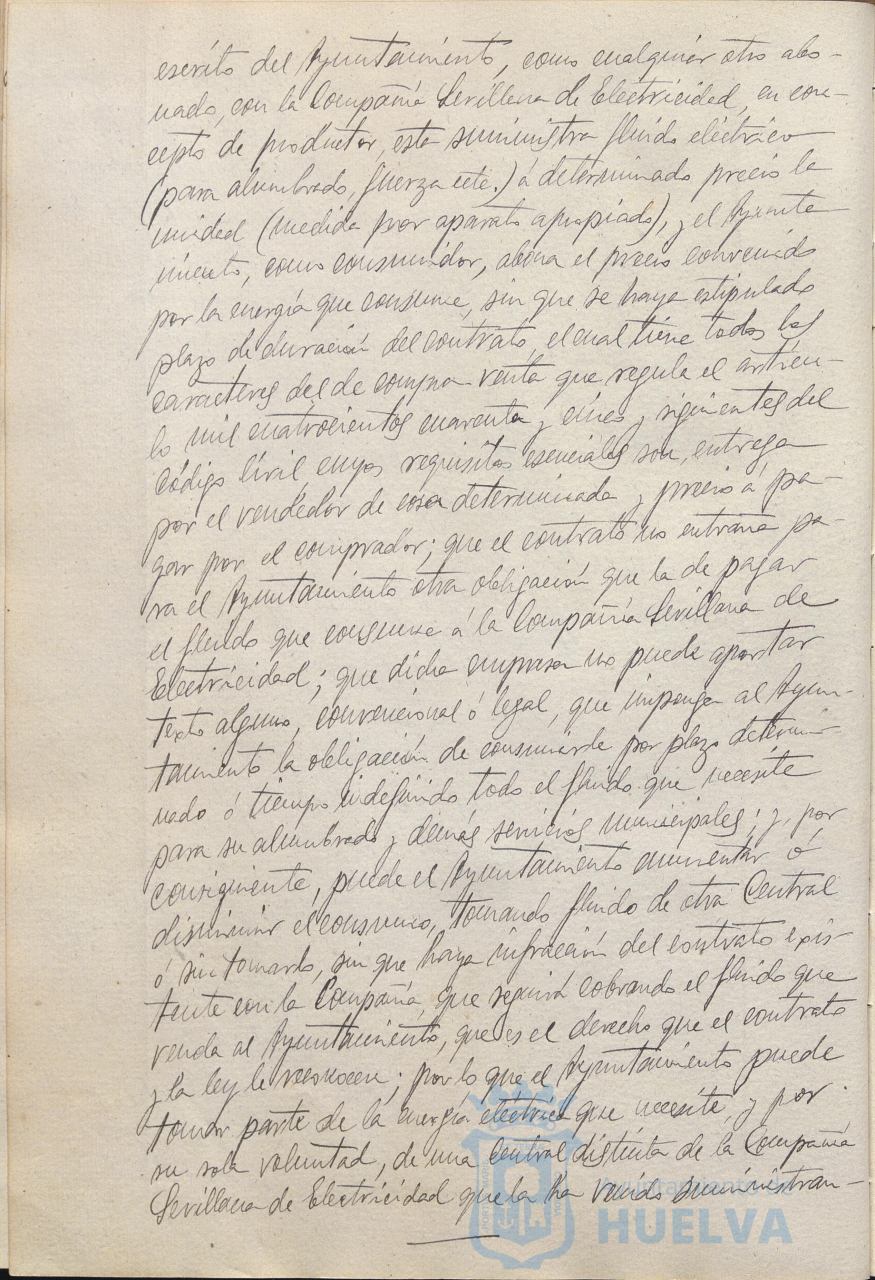 escrito del Ayuntamiento, como cualquier otro abo-
nado, con la Compañía Sevillana de Electricidad, en con-
cepto de productor, esta suministra fluido eléctrico
(para alumbrado, fuerza etc.) á determinado precio la
unidad (medida por aparato apropiado), y el Ayunta
miento, como consumidor, abona el precio convenido
por la energía que consume, sin que se haya estipulado
plazo de duración del contrato, el cual tiene todos los
caracteres del de compra-venta que regula el artícu-
lo mil cuatrocientos cuarenta y cinco y siguientes del
Código Civil, cuyos requisitos esenciales son, entrega
por el vendedor de cosa determinada y precio á pa-
gar por el comprador; que el contrato no entraña pa-
ra el Ayuntamiento otra obligación que la de pagar
el fluido que consume á la Compañía Sevillana de
Electricidad; que dicha empresa no puede aportar
texto alguno, convencional ó legal, que imponga al Ayun-
tamiento la obligación de consumirle por plazo determi-
nado ó tiempo indefinido todo el fluido que necesite
para su alumbrado y demás servicios municipales; y, por
consiguiente, puede el Ayuntamiento aumentar ó
disminuir el consumo, tomando fluido de otra Central
ó sin tomarlo, sin que haya infracción del contrato exis-
tente con la Compañía, que seguirá cobrando el fluido que
venda al Ayuntamiento, que es el derecho que el contrato
y la ley le reconocen; por lo que el Ayuntamiento puede
tomar parte de la energía eléctrica que necesite, y por
su sola voluntad, de una central distinta de la Compañía
Sevillana de Electricidad que la ha venido suministran-
Ayuntamiento de
HUELVA